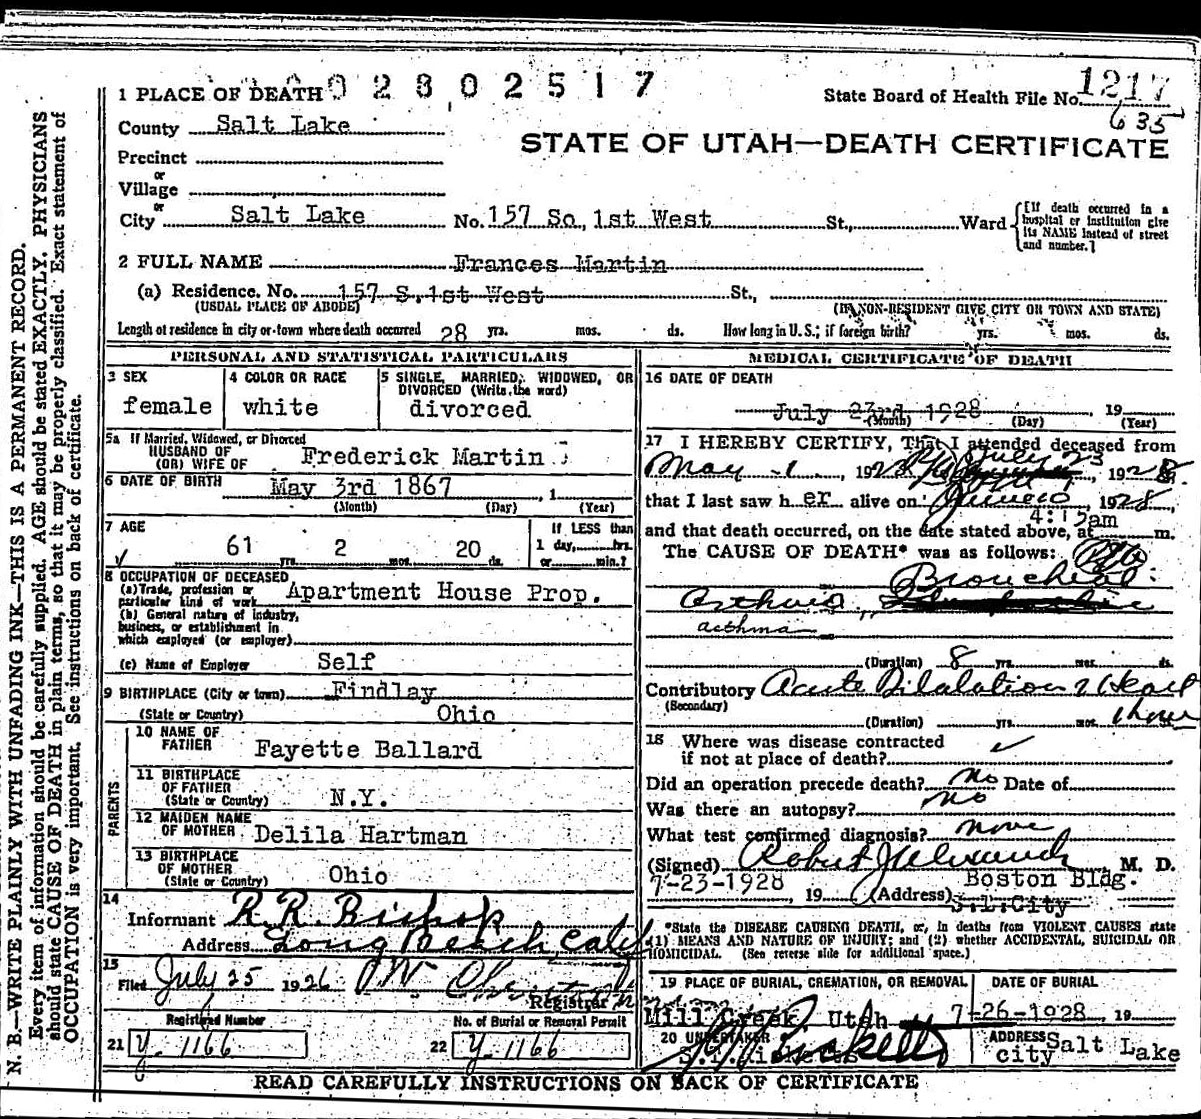 N. B.—WRITE PLAINLY WITH UNFADING INK—THIS IS A PERMANENT RECORD.
Every item of information should be carefully supplied. AGE should be stated EXACTLY. PHYSICIANS
should state CAUSE OF DEATH in plain terms, so that it may be properly classified. Exact statement of
OCCUPATION is very important. See instructions on back of certificate.
1 PLACE OF DEATH 02802517
State Board of Health File No. 1217
635
County Salt Lake
STATE OF UTAH—DEATH CERTIFICATE
Precinct
or
Village
or
City Salt Lake No. 157 So. 1st West St., Ward
[If death occurred in a
hospital or institution give
its NAME instead of street
and number.]
2 FULL NAME Frances Martin
(a) Residence. No. 157 S. 1st West St.,
(USUAL PLACE OF ABODE) (IF NON-RESIDENT GIVE CITY OR TOWN AND STATE)
Length of residence in city or town where death occurred 28 yrs. mos. ds. How long in U.S.; if foreign birth? yrs. mos. ds.
PERSONAL AND STATISTICAL PARTICULARS
3 SEX
female
4 COLOR OR RACE
white
5 SINGLE, MARRIED, WIDOWED, OR
DIVORCED (Write the word)
divorced
5a If Married, Widowed, or Divorced
HUSBAND OF
(OR) WIFE OF Frederick Martin
6 DATE OF BIRTH May 3rd 1867, 1
(Month) (Day) (Year)
7 AGE
61 yrs. 2 mos. 20 ds.
If LESS than
1 day, hrs.
or min.?
8 OCCUPATION OF DECEASED
(a) Trade, profession or
particular kind of work Apartment House Prop.
(b) General nature of industry,
business, or establishment in
which employed (or employer)
(c) Name of Employer Self
9 BIRTHPLACE (City or town) Findlay
(State or Country) Ohio
PARENTS
10 NAME OF
FATHER Fayette Ballard
11 BIRTHPLACE
OF FATHER
(State or Country) N.Y.
12 MAIDEN NAME
OF MOTHER Delila Hartman
13 BIRTHPLACE
OF MOTHER
(State or Country) Ohio
14
Informant R. R. Bishop
Address Long Beach, Calif
15
Filed July 25 1926
Registrar
Registered Number
21 Y-1166
No. of Burial or Removal Permit
22 Y-1166
MEDICAL CERTIFICATE OF DEATH
16 DATE OF DEATH
July 23rd, 1928, 19
(Month) (Day) (Year)
17 I HEREBY CERTIFY, That I attended deceased from
May 1, 192 July 23, 1928
that I last saw her alive on 1928,
and that death occurred, on the date stated above, at 4:15am m.
The CAUSE OF DEATH* was as follows:
Bronchial
asthma
(Duration) 8 yrs. mos. ds.
Contributory Acute Dilatation of Heart
(Secondary)
(Duration) yrs. mos. 1 hour
18 Where was disease contracted
if not at place of death?
Did an operation precede death? No Date of
Was there an autopsy? No
What test confirmed diagnosis? None
(Signed) Robert M. D.
7-23-1928, 19 (Address) Boston Bldg.
S.L.City
*State the DISEASE CAUSING DEATH, or, in deaths from VIOLENT CAUSES state
(1) MEANS AND NATURE OF INJURY; and (2) whether ACCIDENTAL, SUICIDAL OR
HOMICIDAL. (See reverse side for additional space.)
19 PLACE OF BURIAL, CREMATION, OR REMOVAL
Mill Creek, Utah
DATE OF BURIAL
7-26-1928, 19
20 UNDERTAKER
ADDRESS Salt Lake
city
READ CAREFULLY INSTRUCTIONS ON BACK OF CERTIFICATE